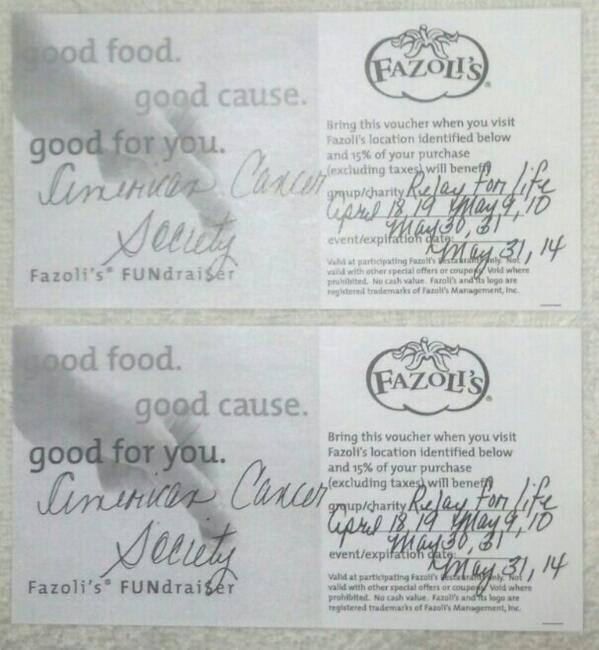 good food.
good cause.
good for you.
American Cancer
Society
Fazoli's® FUNdraiser
FAZOLI'S®
Bring this voucher when you visit
Fazoli's location identified below
and 15% of your purchase
(excluding taxes) will benefit
group/charity Relay For life
April 18, 19 May 9, 10
May 30, 31
event/expiration date:
May 31, 14
Valid at participating Fazoli's Restaurants only. Not
valid with other special offers or coupons. Void where
prohibited. No cash value. Fazoli's and its logo are
registered trademarks of Fazoli's Management, Inc.
good food.
good cause.
good for you.
American Cancer
Society
Fazoli's® FUNdraiser
FAZOLI'S®
Bring this voucher when you visit
Fazoli's location identified below
and 15% of your purchase
(excluding taxes) will benefit
group/charity Relay For life
April 18, 19 May 9, 10
May 30, 31
event/expiration date:
May 31, 14
Valid at participating Fazoli's Restaurants only. Not
valid with other special offers or coupons. Void where
prohibited. No cash value. Fazoli's and its logo are
registered trademarks of Fazoli's Management, Inc.